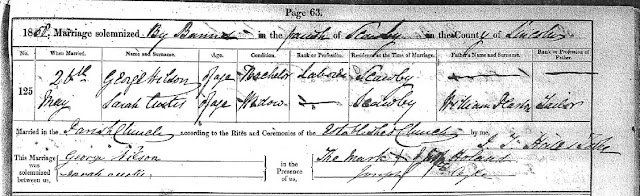 Page 63.
18 Marriage solemnized By Banns in the parish of Scawby in the County of Lincoln
No. When Married. Name and Surname. Age. Condition. Rank or Profession. Residence at the Time of Marriage. Father's Name and Surname. Rank or Profession of Father.
125 26th George Wilson of age Bachelor Laborer Scawby
May Sarah Curtis of age Widow Scawby William Tailor
Married in the Parish Church according to the Rites and Ceremonies of the Established Church by me,
This Marriage was solemnized between us, George Wilson Sarah Curtis in the Presence of us, The mark X of Holand
Joseph